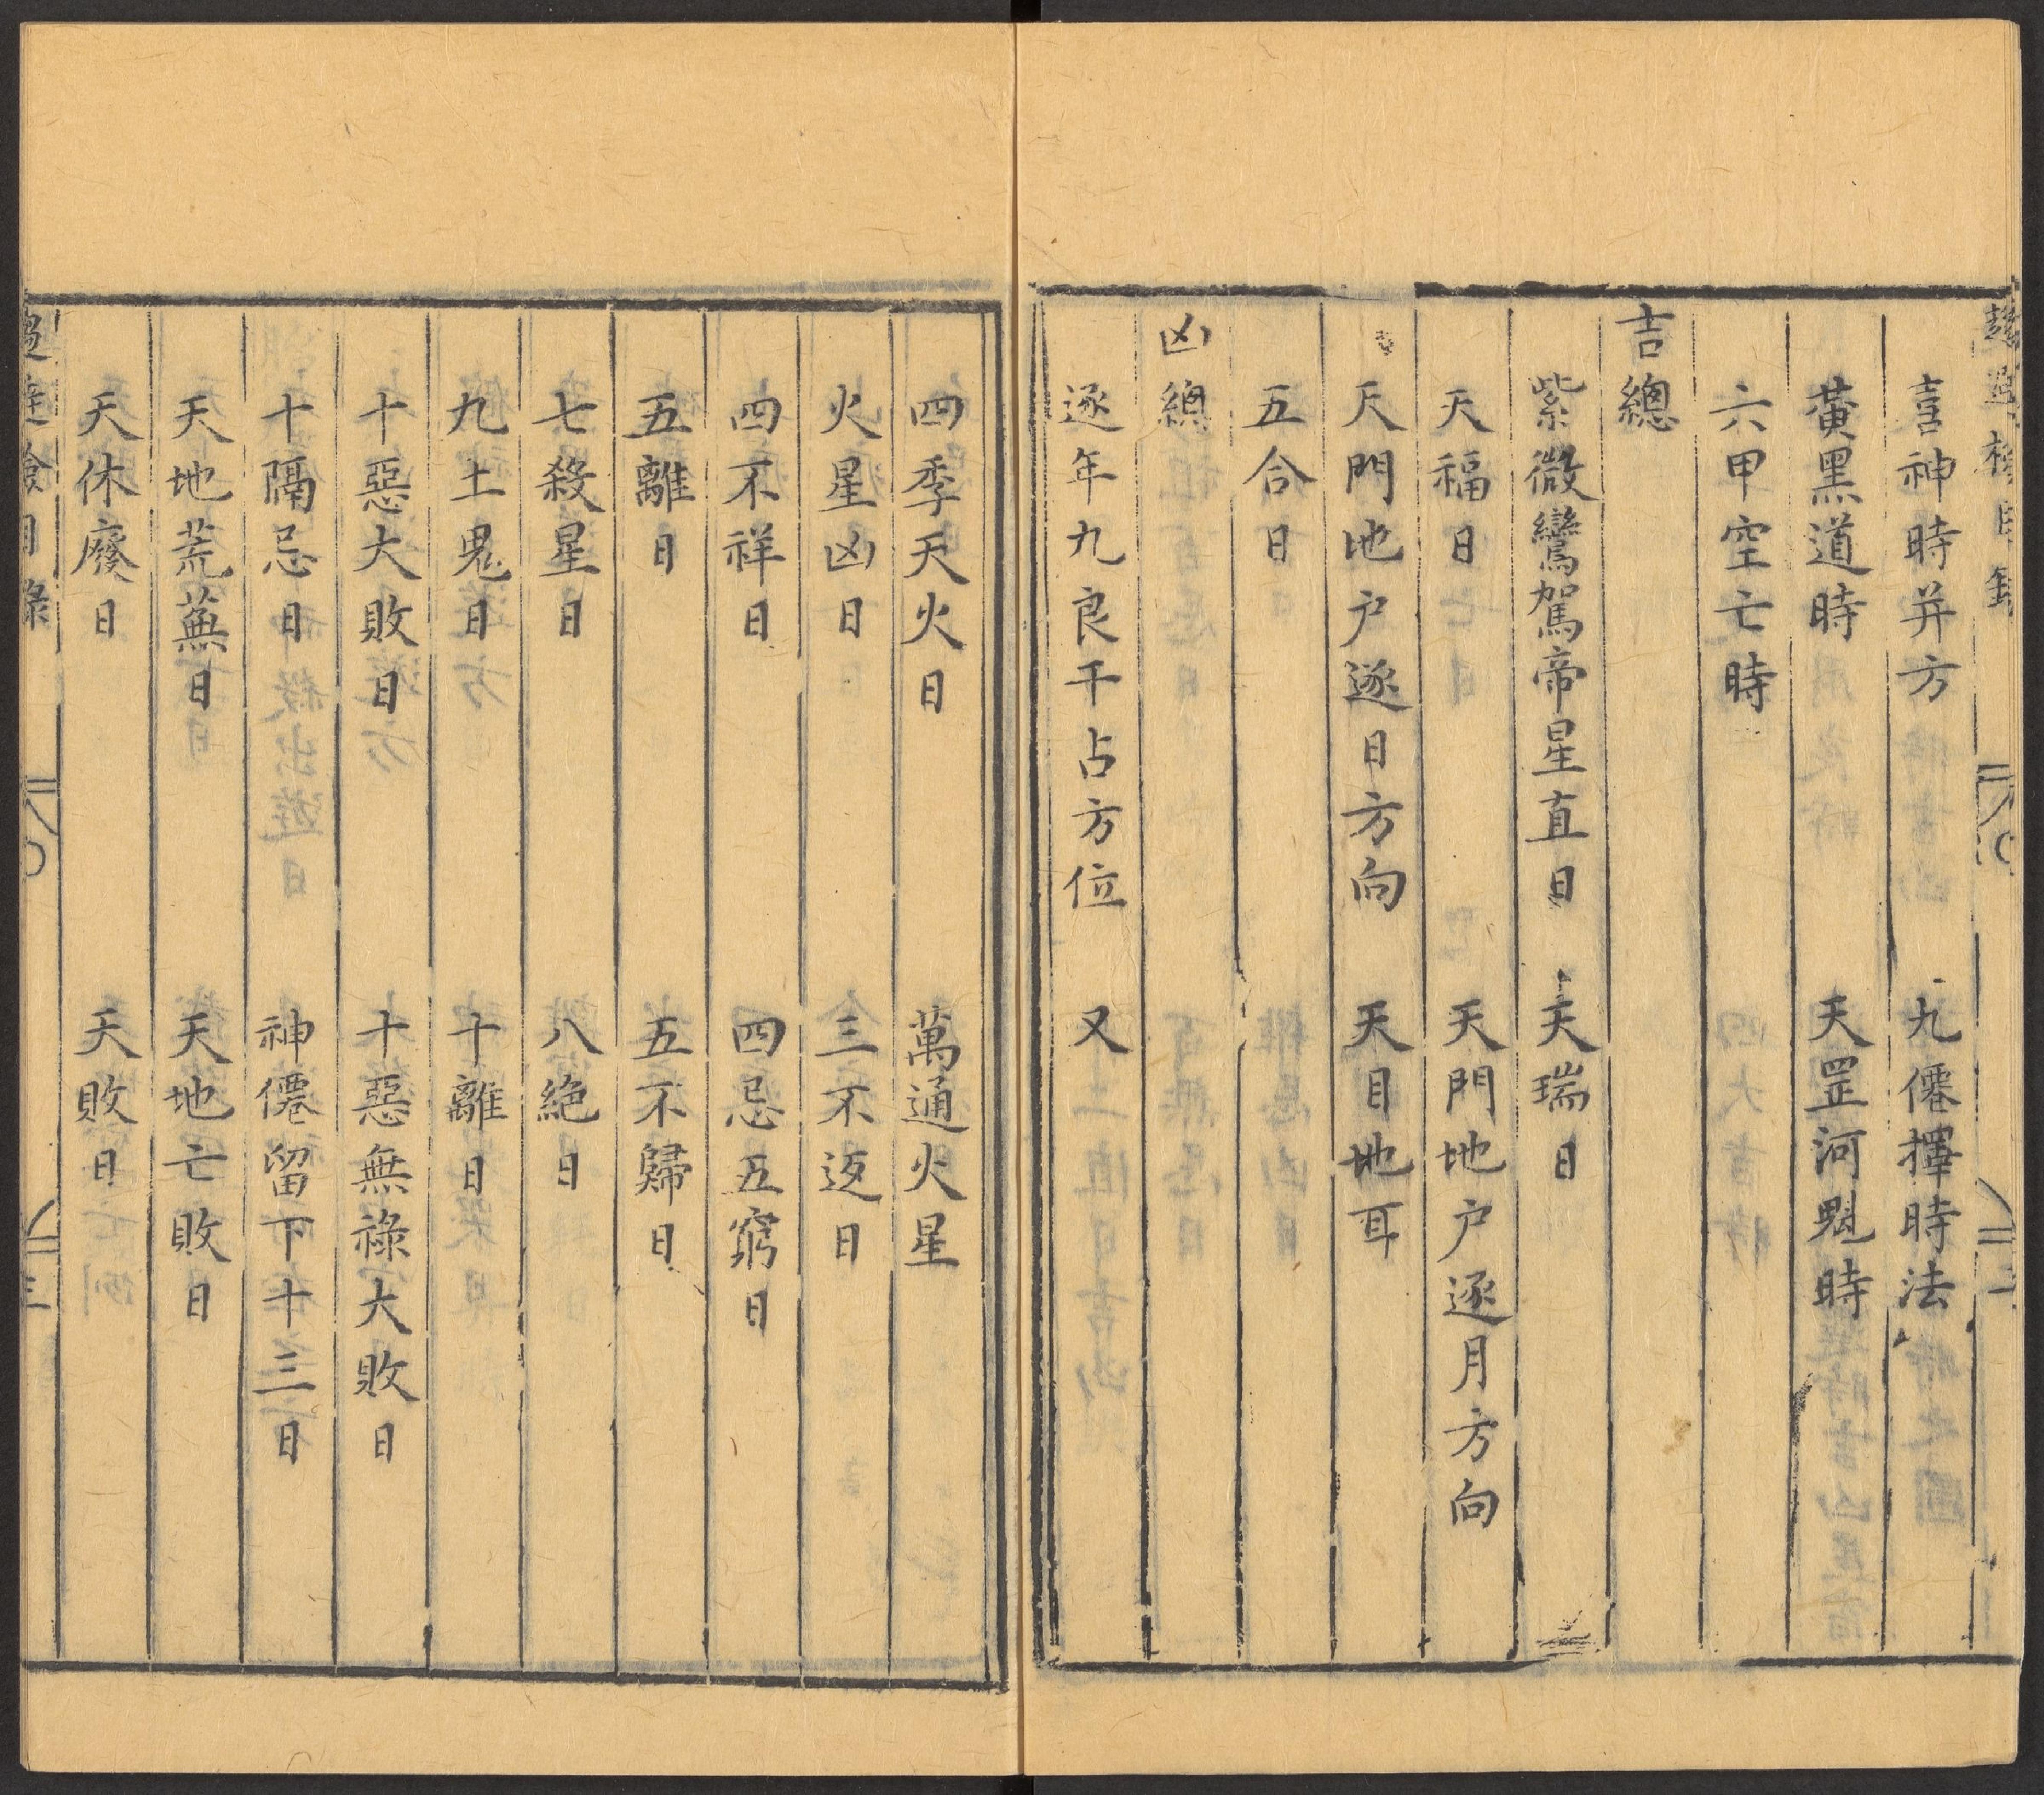 喜神時并方　九僊擇時法
黃黑道時　天罡河魁時
六甲空亡時
吉總
紫微鸞駕帝星直日　天瑞日
天福日　天門地户逐月方向
天門地户逐日方向　天目地耳
五合日
凶總
逐年九良干占方位　又
四季天火日　萬通火星
火星凶日　三不返日
四不祥日　四忌五窮日
五離日　五不歸日
七殺星日　八絶日
九土鬼日　十離日
十惡大敗日　十惡無祿大敗日
十隔忌日　神僊留下十三日
天地荒蕪日　天地亡敗日
天休廢日　天敗日